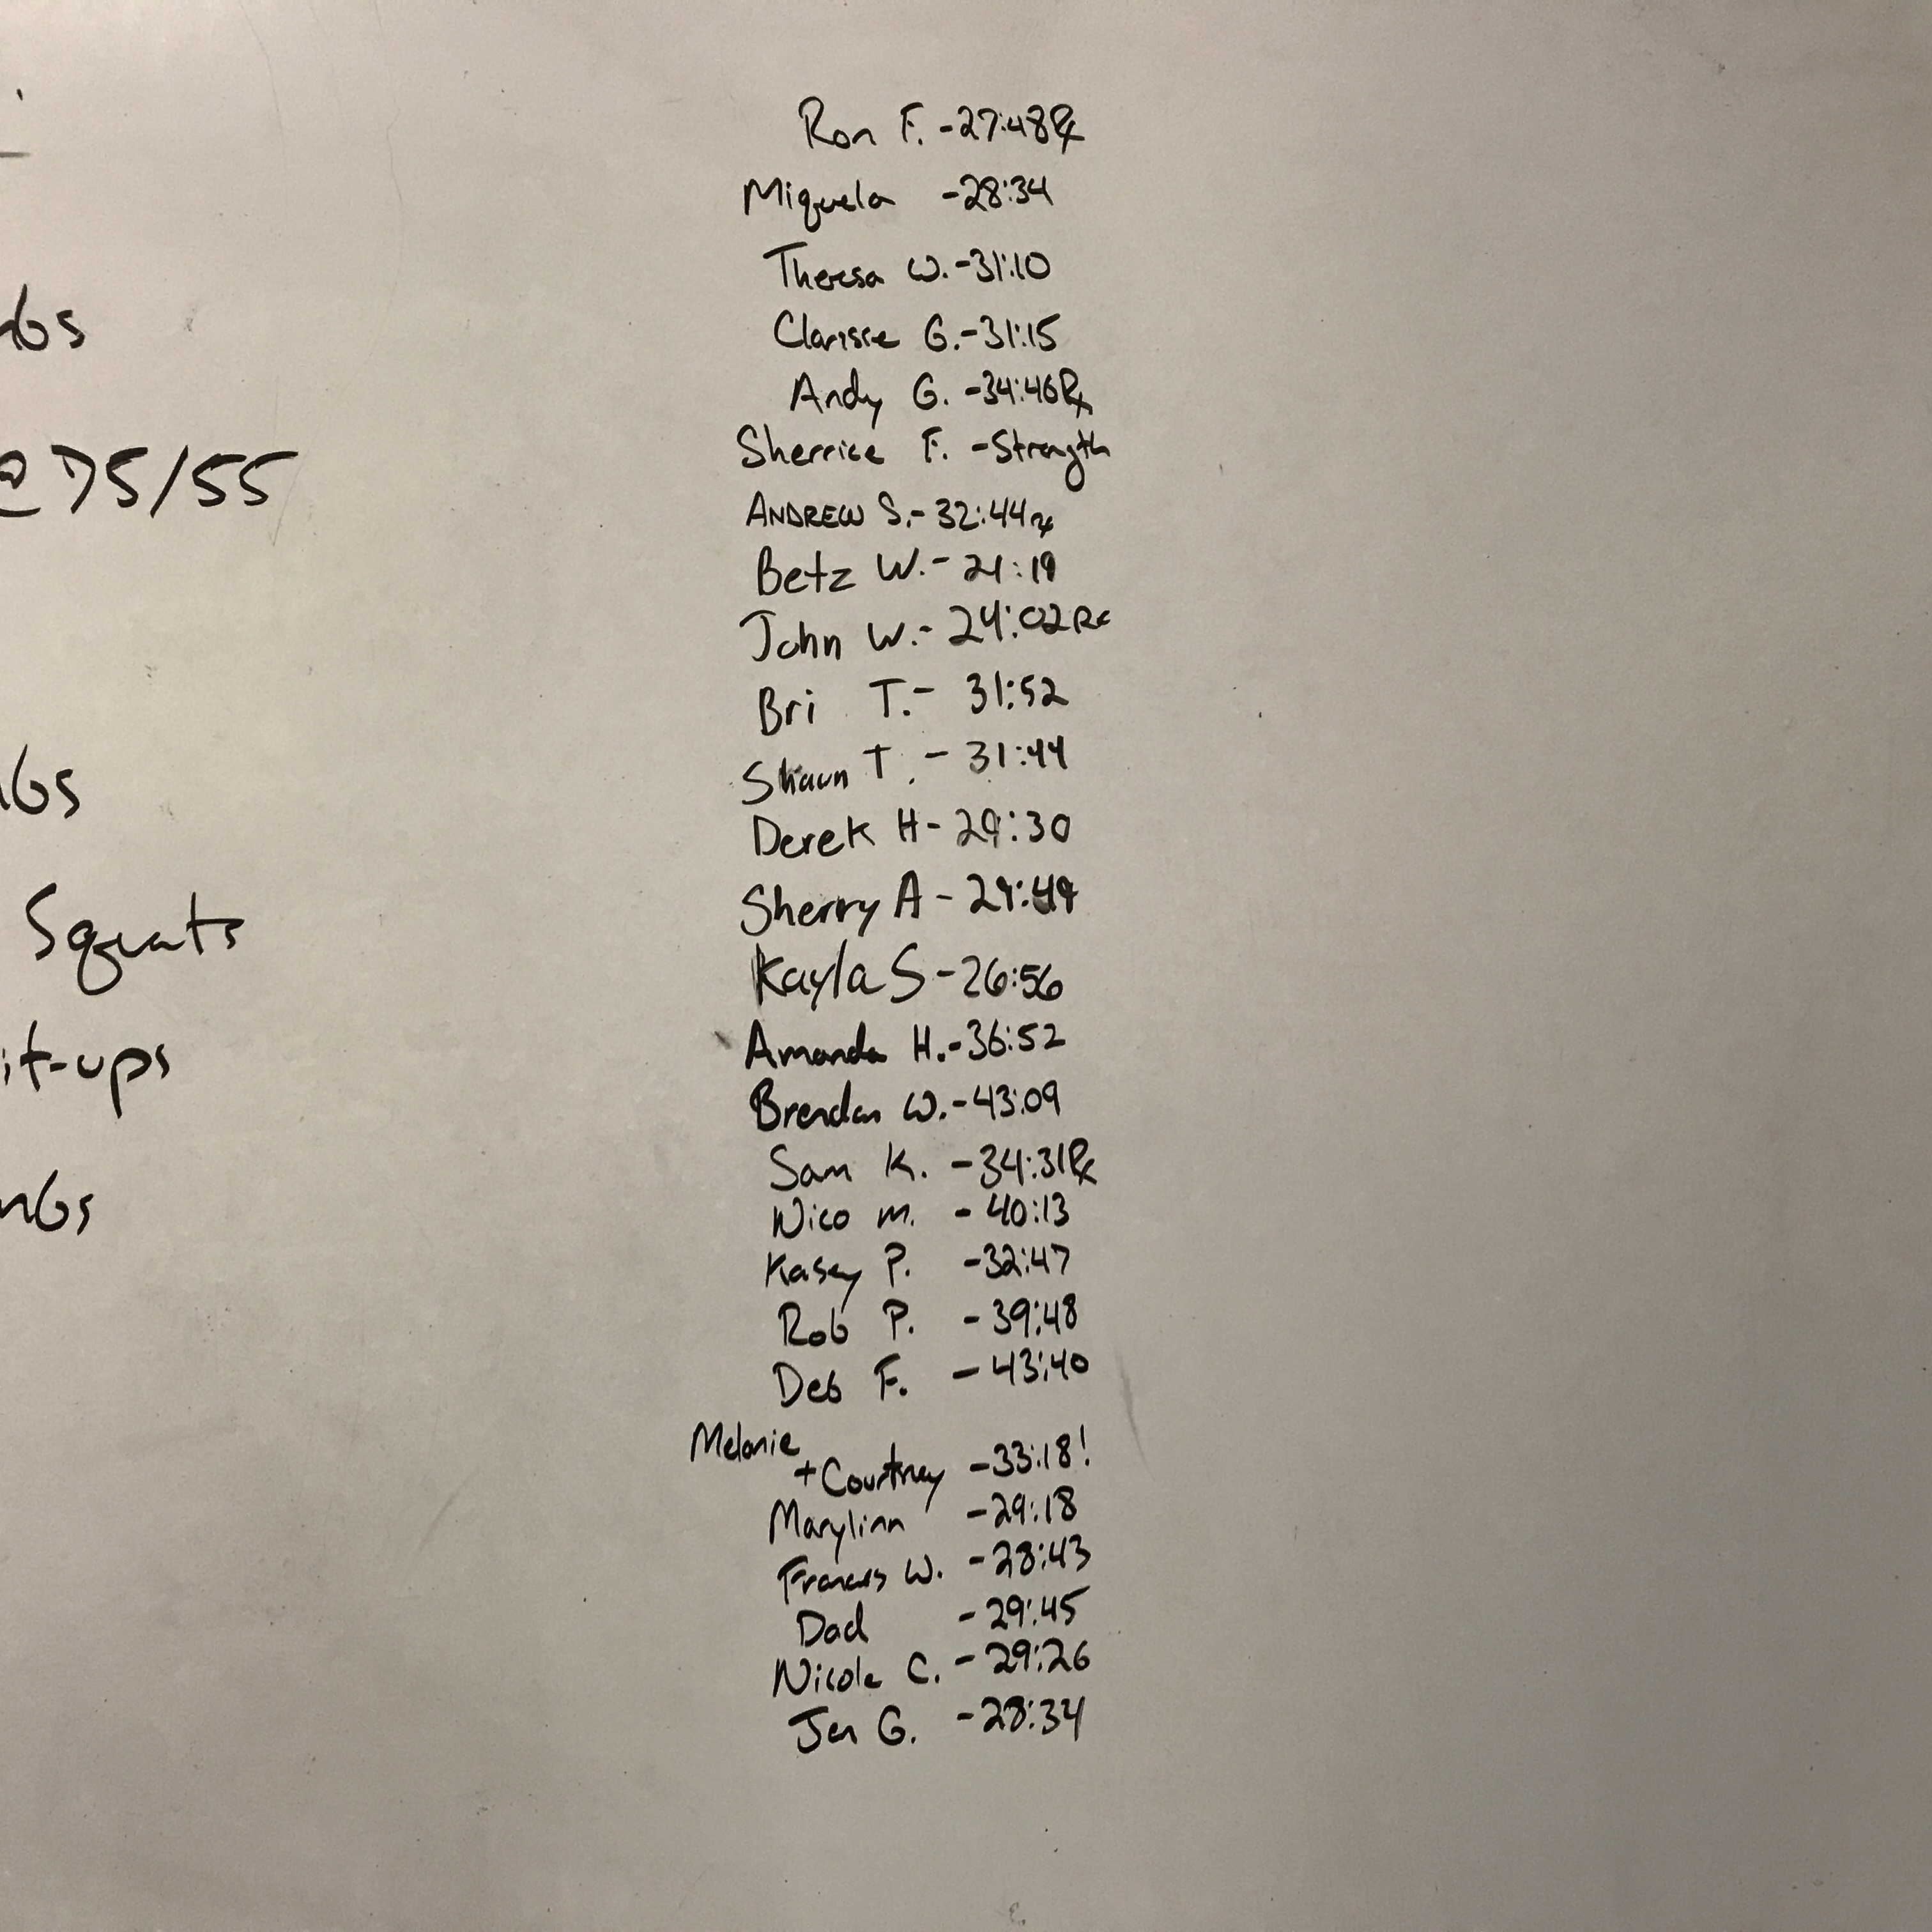 Ron F. -27:48Rx
Miquela -28:34
Theresa W. -31:10
Clarisse G. -31:15
Andy G. -34:46Rx
Sherrice F. -Strength
ANDREW S. - 32:44rx
Betz W. - 21:19
John W. - 24:02Rx
Bri T. - 31:52
Shaun T. - 31:44
Derek H - 29:30
Sherry A - 29:49
Kayla S - 26:56
Amanda H. -36:52
Brendan W. -43:09
Sam K. -34:31Rx
Nico M. - 40:13
Kasey P. -32:47
Rob P. - 39:48
Deb F. - 43:40
Melanie
+Courtney -33:18!
Marylinn -29:18
Frances W. -28:43
Dad -29:45
Nicole C. - 29:26
Jen G. -28:34
@75/55
Squats
it-ups